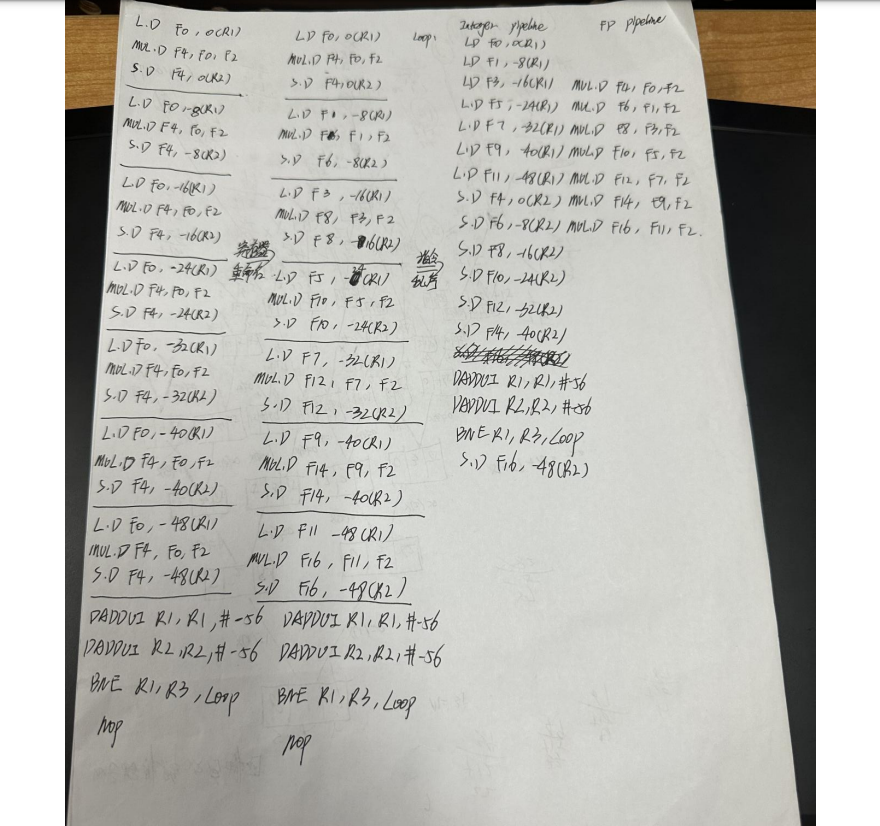 L.D F0, 0(R1)
MUL.D F4, F0, F2
S.D F4, 0(R2)
L.D F0, -8(R1)
MUL.D F4, F0, F2
S.D F4, -8(R2)
L.D F0, -16(R1)
MUL.D F4, F0, F2
S.D F4, -16(R2)
L.D F0, -24(R1)
MUL.D F4, F0, F2
S.D F4, -24(R2)
L.D F0, -32(R1)
MUL.D F4, F0, F2
S.D F4, -32(R2)
L.D F0, -40(R1)
MUL.D F4, F0, F2
S.D F4, -40(R2)
L.D F0, -48(R1)
MUL.D F4, F0, F2
S.D F4, -48(R2)
DADDUI R1, R1, #-56
DADDUI R2, R2, #-56
BNE R1, R3, Loop
nop
寄存器
重命名
L.D F0, 0(R1)
MUL.D F4, F0, F2
S.D F4, 0(R2)
L.D F1, -8(R1)
MUL.D F6, F1, F2
S.D F6, -8(R2)
L.D F3, -16(R1)
MUL.D F8, F3, F2
S.D F8, -16(R2)
L.D F5, -24(R1)
MUL.D F10, F5, F2
S.D F10, -24(R2)
L.D F7, -32(R1)
MUL.D F12, F7, F2
S.D F12, -32(R2)
L.D F9, -40(R1)
MUL.D F14, F9, F2
S.D F14, -40(R2)
L.D F11 -48(R1)
MUL.D F16, F11, F2
S.D F16, -48(R2)
DADDUI R1, R1, #-56
DADDUI R2, R2, #-56
BNE R1, R3, Loop
nop
指令
Integer pipeline FP pipeline
Loop: LD F0, 0(R1)
LD F1, -8(R1)
LD F3, -16(R1) MUL.D F4, F0, F2
L.D F5, -24(R1) MUL.D F6, F1, F2
L.D F7, -32(R1) MUL.D F8, F3, F2
L.D F9, -40(R1) MUL.D F10, F5, F2
L.D F11, -48(R1) MUL.D F12, F7, F2
S.D F4, 0(R2) MUL.D F14, F9, F2
S.D F6, -8(R2) MUL.D F16, F11, F2.
S.D F8, -16(R2)
S.D F10, -24(R2)
S.D F12, -32(R2)
S.D F14, -40(R2)
DADDUI R1, R1, #-56
DADDUI R2, R2, #-56
BNE R1, R3, Loop
S.D F16, -48(R2)